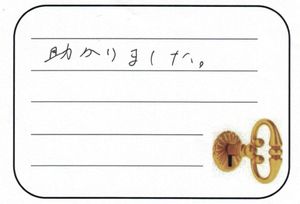 助かりました。